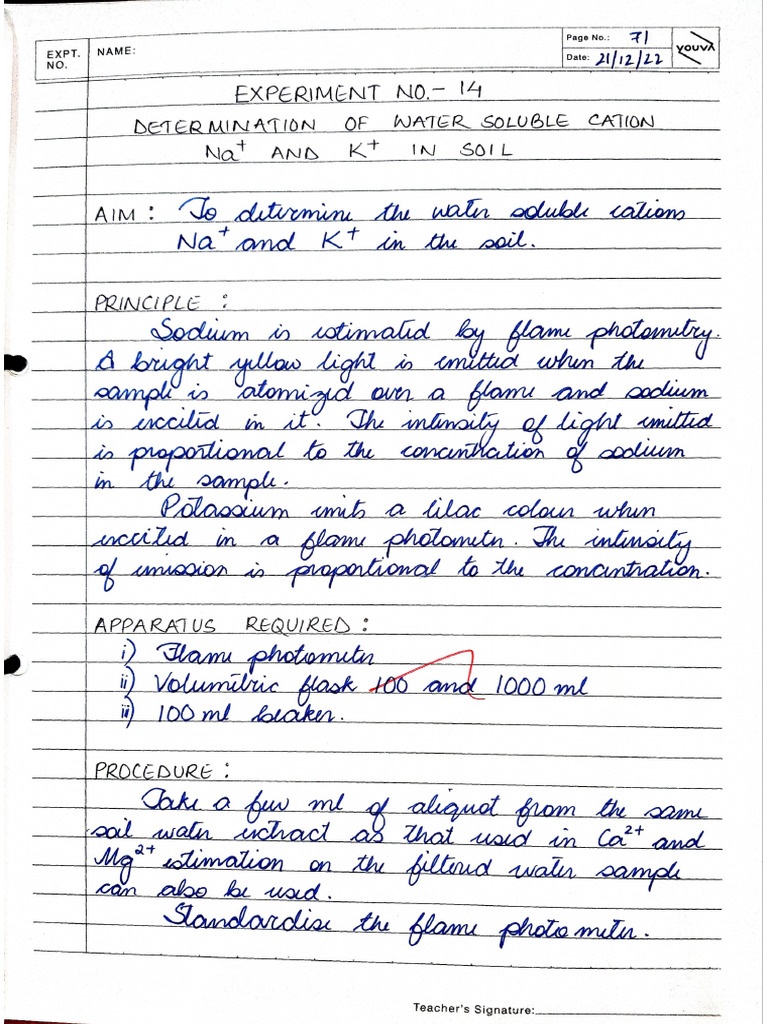 EXPT. NO.
NAME:
Page No.: 71
Date: 21/12/22
YOUVA
EXPERIMENT NO.- 14
DETERMINATION OF WATER SOLUBLE CATION
Na⁺ AND K⁺ IN SOIL
AIM : To determine the water soluble cations
Na⁺ and K⁺ in the soil.
PRINCIPLE :
Sodium is estimated by flame photometry.
A bright yellow light is emitted when the
sample is atomized over a flame and sodium
is excited in it. The intensity of light emitted
is proportional to the concentration of sodium
in the sample.
Potassium emits a lilac colour when
excited in a flame photometer. The intensity
of emission is proportional to the concentration.
APPARATUS REQUIRED :
i) Flame photometer
ii) Volumetric flask 100 and 1000 ml
iii) 100 ml beaker.
PROCEDURE :
Take a few ml of aliquot from the same
soil water extract as that used in Ca²⁺ and
Mg²⁺ estimation on the filtered water sample
can also be used.
Standardise the flame photometer.
Teacher's Signature: